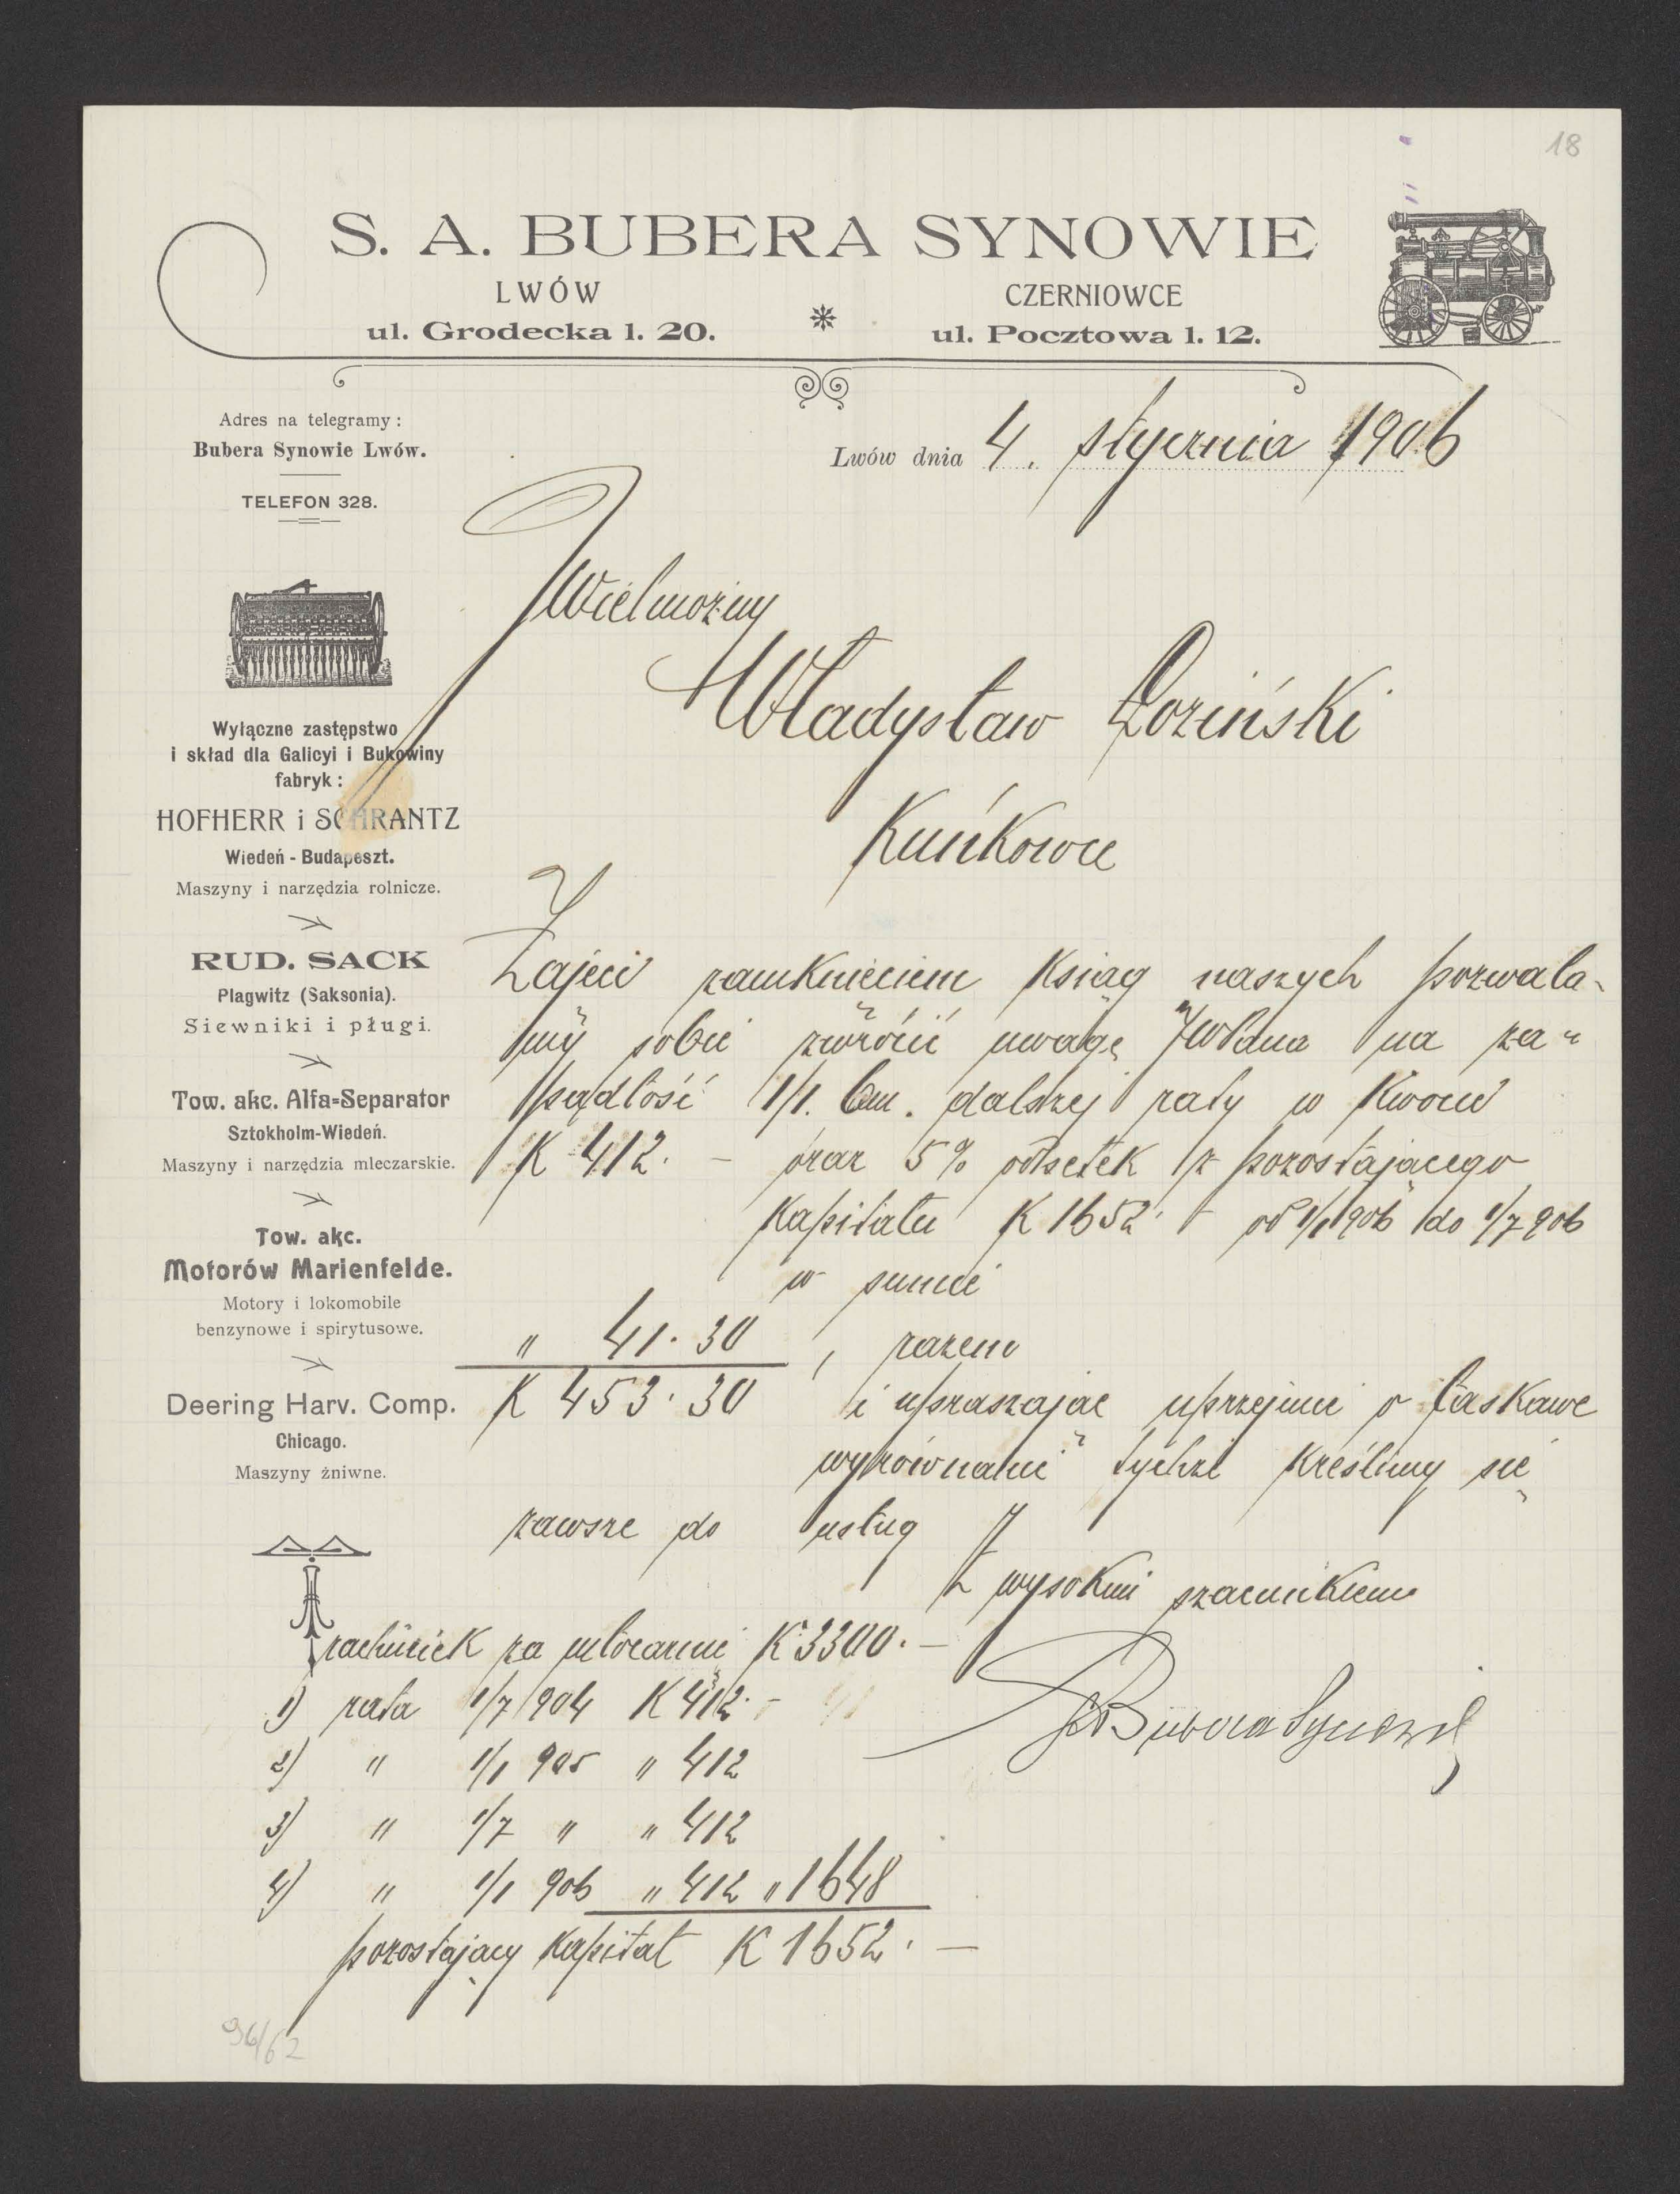 18
S. A. BUBERA SYNOWIE
LWÓW
ul. Grodecka l. 20.
CZERNIOWCE
ul. Pocztowa l. 12.
Adres na telegramy:
Bubera Synowie Lwów.
TELEFON 328.
Lwów dnia 4. stycznia 1906
Wielmożny
Władysław Łoziński
Kuńkowce
Wyłączne zastępstwo
i skład dla Galicyi i Bukowiny
fabryk:
HOFHERR i SCHRANTZ
Wiedeń - Budapeszt.
Maszyny i narzędzia rolnicze.
RUD. SACK
Plagwitz (Saksonia).
Siewniki i pługi.
Tow. akc. Alfa-Separator
Sztokholm-Wiedeń.
Maszyny i narzędzia mleczarskie.
Tow. akc.
Motorów Marienfelde.
Motory i lokomobile
benzynowe i spirytusowe.
Deering Harv. Comp.
Chicago.
Maszyny żniwne.
Zajęci zamknięciem ksiąg naszych pozwala-
my sobie zwrócić uwagę na za-
padłość 1/1. bm. dalszej raty w kwocie
K 412. – oraz 5% odsetek z pozostającego
kapitału K 1652. – od 1/1 906 do 1/7 906
w sumie
" 41.30, razem
K 453.30 i upraszając uprzejmie o łaskawe
wyrównanie tychże kreślimy się
zawsze do usług
Z wysokim szacunkiem
SABubera Synowie
rachunek za młocarnię K 3300. –
1) rata 1/7 904 K 412. –
2) " 1/1 905 " 412
3) " 1/7 " " 412
4) " 1/1 906 " 412 " 1648
pozostający kapitał K 1652. –
96/62